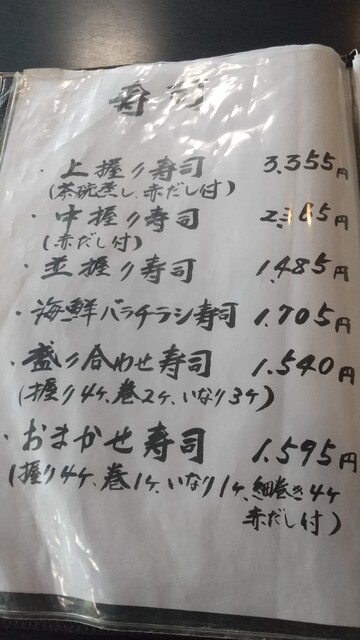 寿司
・上握り寿司 3,355円
(茶碗蒸し、赤だし付)
・中握り寿司
(赤だし付)
・並握り寿司 1,485円
・海鮮バラチラシ寿司 1,705円
・盛り合わせ寿司 1,540円
(握り4ヶ、巻2ヶ、いなり3ヶ)
・おまかせ寿司 1,595円
(握り4ヶ、巻1ヶ、いなり1ヶ、細巻き4ヶ
赤だし付)